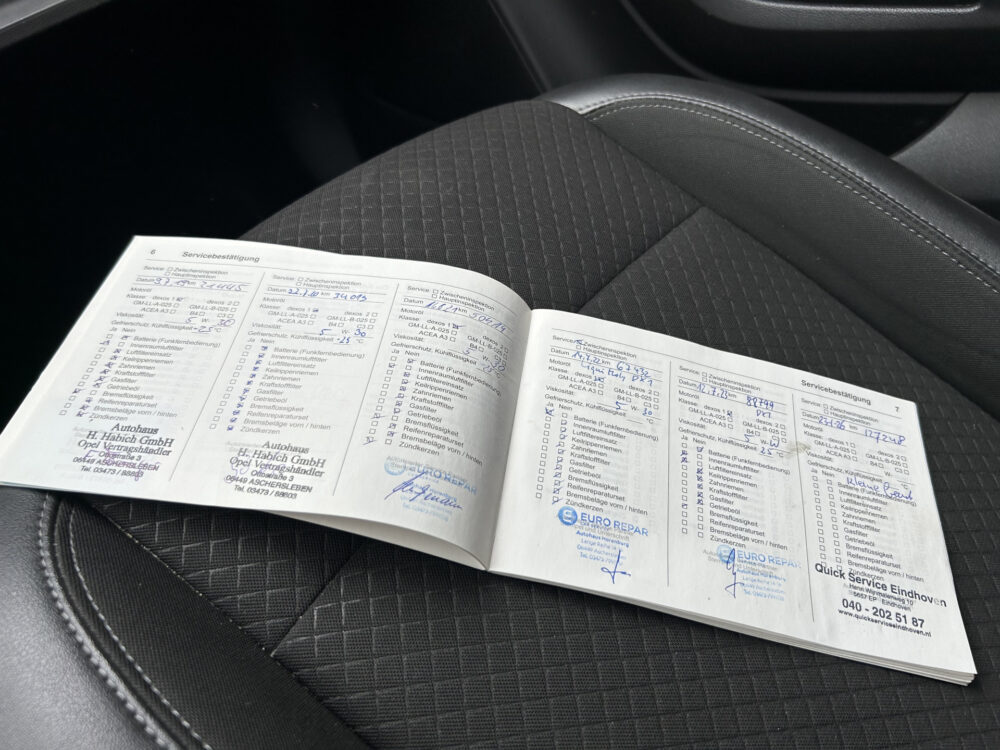 6 Servicebestätigung
Service: Zwischeninspektion
Hauptinspektion
Datum km 21445
Motoröl
Klasse: dexos 1 dexos 2
GM-LL-A-025 GM-LL-B-025
ACEA A3 B4 C3
Viskosität 5 W 30
Gefrierschutz, Kühlflüssigkeit -25 °C
Ja Nein
Batterie (Funkfernbedienung)
Innenraumluftfilter
Luftfiltereinsatz
Keilrippenriemen
Zahnriemen
Kraftstofffilter
Gasfilter
Getriebeöl
Bremsflüssigkeit
Reifenreparaturset
Bremsbeläge vorn / hinten
Zündkerzen
Autohaus
H. Habich GmbH
Opel Vertragshändler
Ottostraße 3
06449 ASCHERSLEBEN
Tel. 03473 / 88603
Service: Zwischeninspektion
Hauptinspektion
Datum km 34013
Motoröl
Klasse: dexos 1 dexos 2
GM-LL-A-025 GM-LL-B-025
ACEA A3 B4 C3
Viskosität 5 W 30
Gefrierschutz, Kühlflüssigkeit -25 °C
Ja Nein
Batterie (Funkfernbedienung)
Innenraumluftfilter
Luftfiltereinsatz
Keilrippenriemen
Zahnriemen
Kraftstofffilter
Gasfilter
Getriebeöl
Bremsflüssigkeit
Reifenreparaturset
Bremsbeläge vorn / hinten
Zündkerzen
Autohaus
H. Habich GmbH
Opel Vertragshändler
Ottostraße 3
06449 ASCHERSLEBEN
Tel. 03473 / 88603
Service: Zwischeninspektion
Hauptinspektion
Datum km
Motoröl
Klasse: dexos 1 dexos 2
GM-LL-A-025 GM-LL-B-025
ACEA A3 B4 C3
Viskosität 5 W
Gefrierschutz, Kühlflüssigkeit
Ja Nein
Batterie (Funkfernbedienung)
Innenraumluftfilter
Luftfiltereinsatz
Keilrippenriemen
Zahnriemen
Kraftstofffilter
Gasfilter
Getriebeöl
Bremsflüssigkeit
Reifenreparaturset
Bremsbeläge vorn / hinten
Zündkerzen
EURO REPAR
Servicebestätigung 7
Service:
Hauptinspektion
Datum km 67432
Motoröl
Klasse: dexos 1 dexos 2
GM-LL-A-025 GM-LL-B-025
ACEA A3 B4 C3
Viskosität 5 W 30
Gefrierschutz, Kühlflüssigkeit °C
Ja Nein
Batterie (Funkfernbedienung)
Innenraumluftfilter
Luftfiltereinsatz
Keilrippenriemen
Zahnriemen
Kraftstofffilter
Gasfilter
Getriebeöl
Bremsflüssigkeit
Reifenreparaturset
Bremsbeläge vorn / hinten
Zündkerzen
EURO REPAR
Service: Zwischeninspektion
Hauptinspektion
Datum km 88799
Motoröl
Klasse: dexos 1 dexos 2
GM-LL-A-025 GM-LL-B-025
ACEA A3 B4 C3
Viskosität 5 W
Gefrierschutz, Kühlflüssigkeit 25 °C
Ja Nein
Batterie (Funkfernbedienung)
Innenraumluftfilter
Luftfiltereinsatz
Keilrippenriemen
Zahnriemen
Kraftstofffilter
Gasfilter
Getriebeöl
Bremsflüssigkeit
Reifenreparaturset
Bremsbeläge vorn / hinten
Zündkerzen
EURO REPAR
Service: Zwischeninspektion
Hauptinspektion
Datum km 127248
Motoröl
Klasse: dexos 1 dexos 2
GM-LL-A-025 GM-LL-B-025
ACEA A3 B4 C3
Viskosität W
Gefrierschutz, Kühlflüssigkeit °C
Ja Nein
Batterie (Funkfernbedienung)
Innenraumluftfilter
Luftfiltereinsatz
Keilrippenriemen
Zahnriemen
Kraftstofffilter
Gasfilter
Getriebeöl
Bremsflüssigkeit
Reifenreparaturset
Bremsbeläge vorn / hinten
Zündkerzen
Quick Service Eindhoven
5657 EP Eindhoven
040 - 202 51 87
www.quickserviceeindhoven.nl